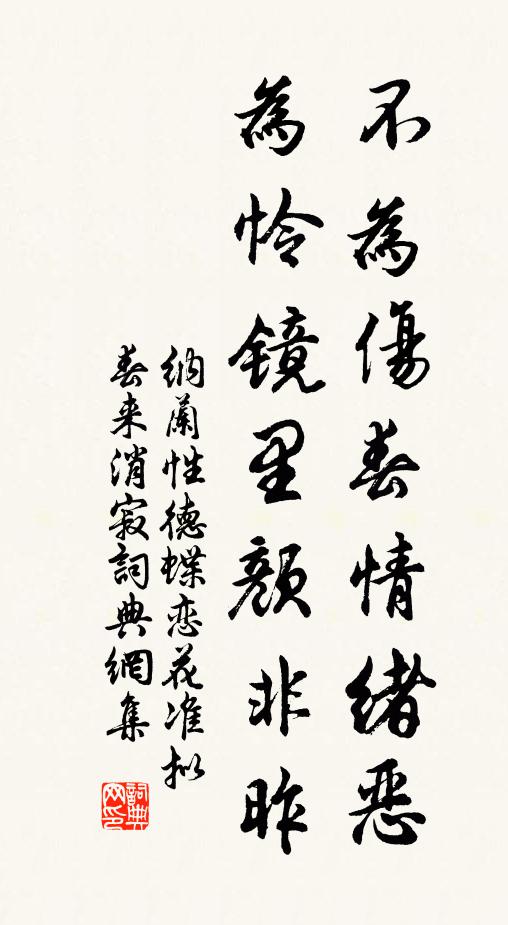 不為傷春情緒惡
為怜镜里顏非昨
纳蘭性德蝶恋花准拟
春来消寂詞典網集
詞典网印